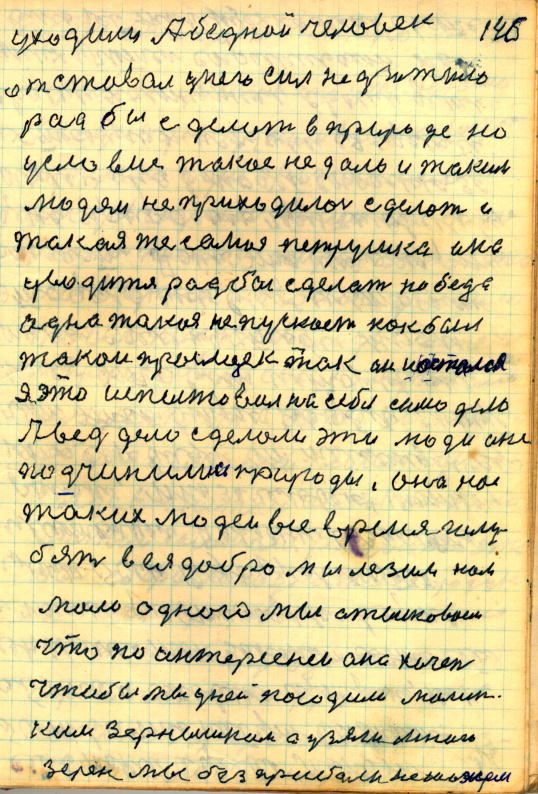 уходили А бедной человек 145
отставал унего сил не дюжило
рад бы сделат в природе но
условие такое не дало и таким
людям не приходилос сделат и
такая же самая петрушка она
уводится рад бы сделат но беда
одна такая не пускает как был
таком промежек так он и остался
я это испытовал на себе само дело
А вед дело сделали эти люди они
подчинили природы, она на
таких людей все время
в ея добро мы лезим нам
мало одного мы отысковаем
что по интересней она хочет
чтобы мы у ней посадили малин.
ким зернышкам а узяли много
зерен мы без прибали не можем